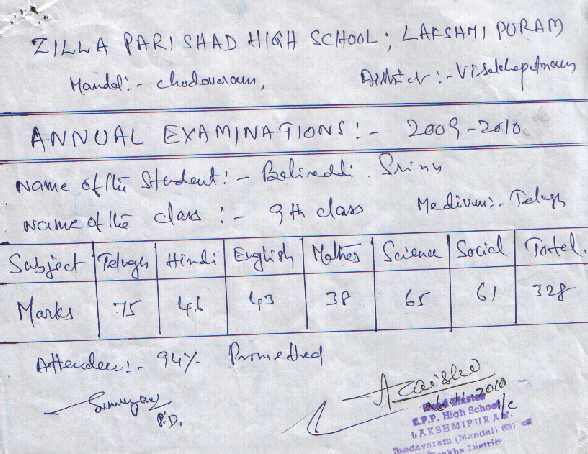 ZILLA PARISHAD HIGH SCHOOL; LAKSHMIPURAM
Mandal:- chodavaram, District:- Visakhapatnam
ANNUAL EXAMINATIONS:- 2009-2010
Name of the Student:- Balireddi. Srinu
Name of the class :- 9th class Medium:. Telugu
Subject Telugu Hindi English Mathes Science Social Total
Marks 75 46 43 38 65 61 328
Attenden:- 94% Promotted
P.D.
2010
I/c
Head Master
Z.P.P. High School
LAKSHMIPURAM
(Mandal)